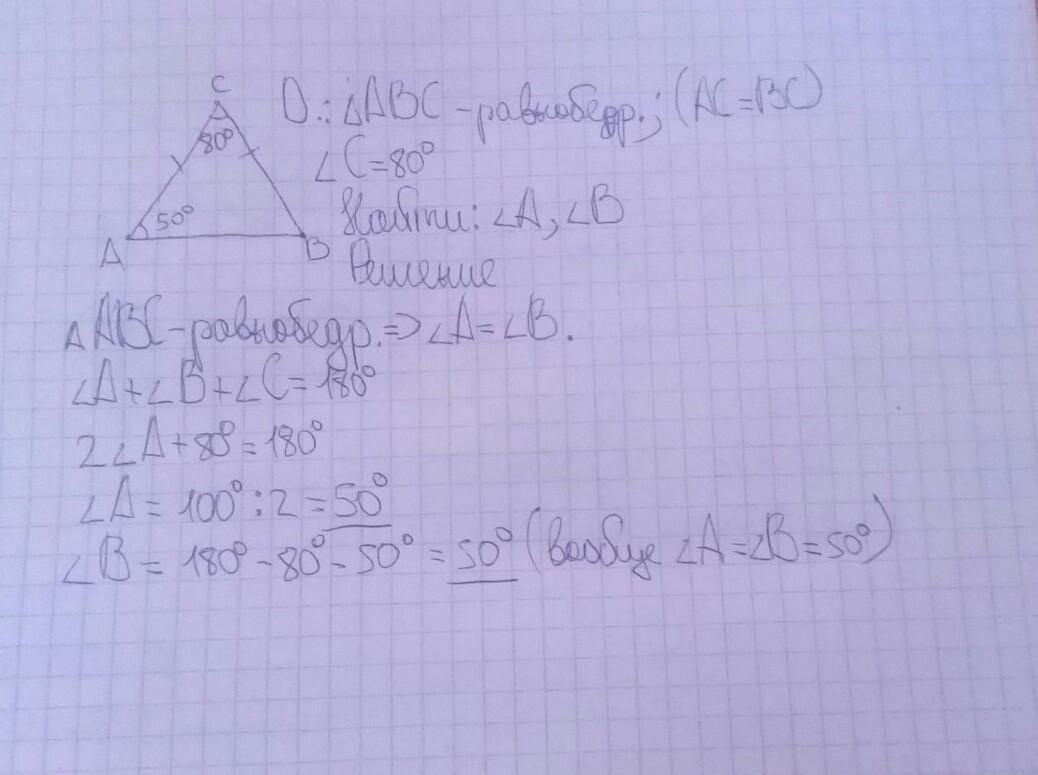 C
80°
50°
A
B
D.: △ABC - равнобедр.; (AC=BC)
∠C=80°
Найти: ∠A, ∠B
Решение
△ABC - равнобедр. => ∠A=∠B.
∠A+∠B+∠C=180°
2∠A+80°=180°
∠A=100°:2=50°
∠B=180°-80°-50°=50° (∠A=∠B=50°)